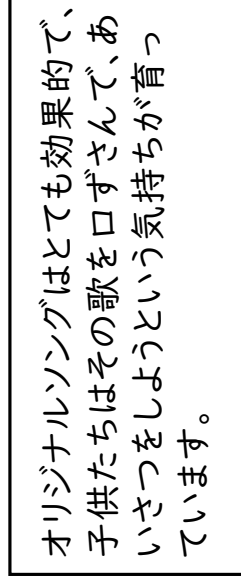 オリジナルソングはとても効果的で、
子供たちはその歌を口ずさんで、あ
いさつをしようという気持ちが育っ
ています。